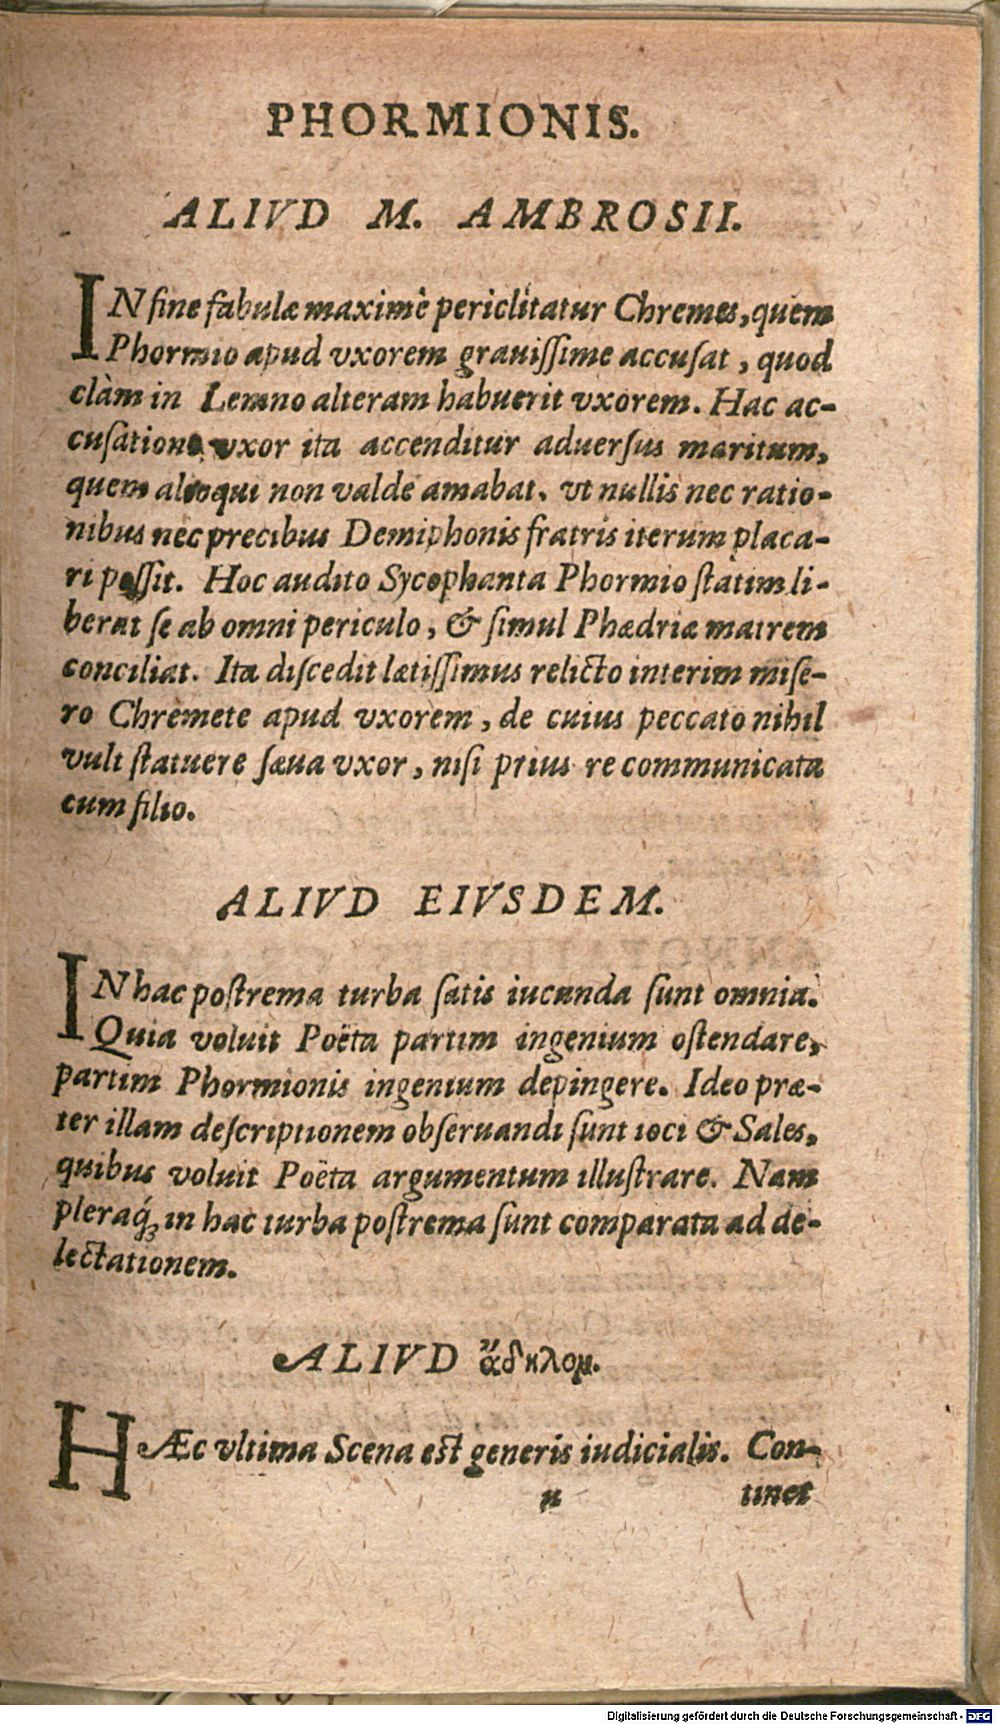 PHORMIONIS.
ALIVD M. AMBROSII.
IN fine fabulæ maximè periclitatur Chremes, quem
Phormio apud vxorem grauiſſime accuſat, quod
clàm in Lemno alteram habuerit vxorem. Hac ac-
cuſatione vxor ita accenditur aduerſus maritum,
quem alioqui non valde amabat, vt nullis nec ratio-
nibus nec precibus Demiphonis fratris iterum placa-
ri poſſit. Hoc audito Sycophanta Phormio ſtatim li-
berat ſe ab omni periculo, & ſimul Phædriæ matrem
conciliat. Ita diſcedit lætiſſimus relicto interim miſe-
ro Chremete apud vxorem, de cuius peccato nihil
vult ſtatuere ſæua vxor, niſi prius re communicata
cum filio.
ALIVD EIVSDEM.
IN hac poſtrema turba ſatis iucunda ſunt omnia.
Quia voluit Poëta partim ingenium oſtendare,
partim Phormionis ingenium depingere. Ideo præ-
ter illam deſcriptionem obſeruandi ſunt ioci & Sales,
quibus voluit Poëta argumentum illuſtrare. Nam
pleraq́ꝫ in hac turba poſtrema ſunt comparata ad de-
lectationem.
ALIVD ἄδηλομ.
HÆc vltima Scena eſt generis iudicialis. Con-
n tinet
Digitalisierung gefördert durch die Deutsche Forschungsgemeinschaft - DFG